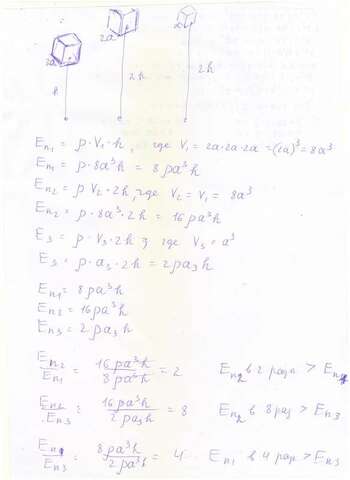 2a
2a
a
h
2h
2h
En₁ = p·V₁·h, где V₁ = 2a·2a·2a = (2a)³ = 8a³
En₁ = p·8a³h = 8pa³h
En₂ = p V₂·2h, где V₂ = V₁ = 8a³
En₂ = p·8a³·2h = 16pa³h
E₃ = p·V₃·2h, где V₃ = a³
E₃ = p·a₃·2h = 2pa₃h
En₁ = 8pa³h
En₂ = 16pa³h
En₃ = 2pa₃h
En₂/En₁ = 16pa³h/8pa³h = 2 En₂ в 2 раза > En₁
En₂/En₃ = 16pa³h/2pa₃h = 8 En₂ в 8 раз > En₃
En₁/En₃ = 8pa³h/2pa³h = 4 En₁ в 4 раз > En₃